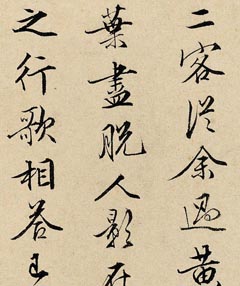 二客從余過黃
葉盡脫人影在
之行歌相答